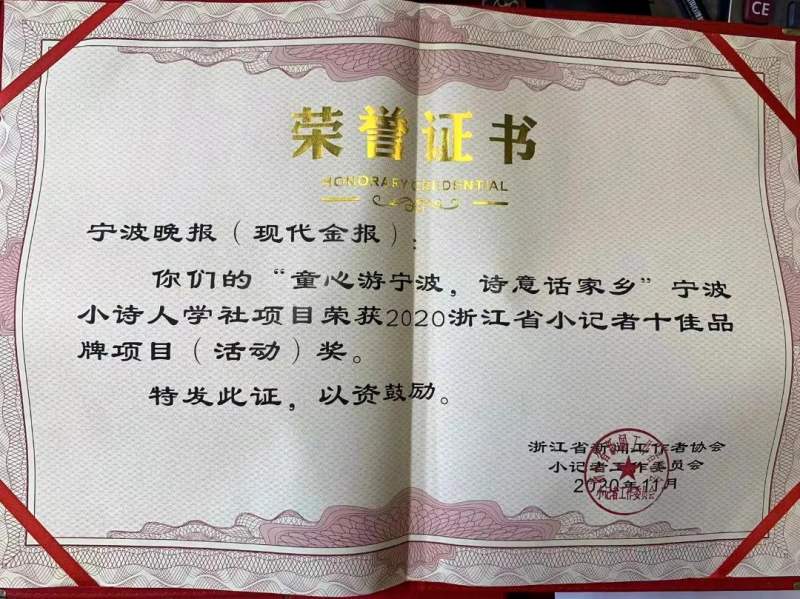 CE
荣誉证书
HONORARY CREDENTIAL
宁波晚报（现代金报）：
你们的“童心游宁波，诗意话家乡”宁波
小诗人学社项目荣获2020浙江省小记者十佳品
牌项目（活动）奖。
特发此证，以资鼓励。
浙江省新闻工作者协会
小记者工作委员会
2020年11月
小记者工作委员会